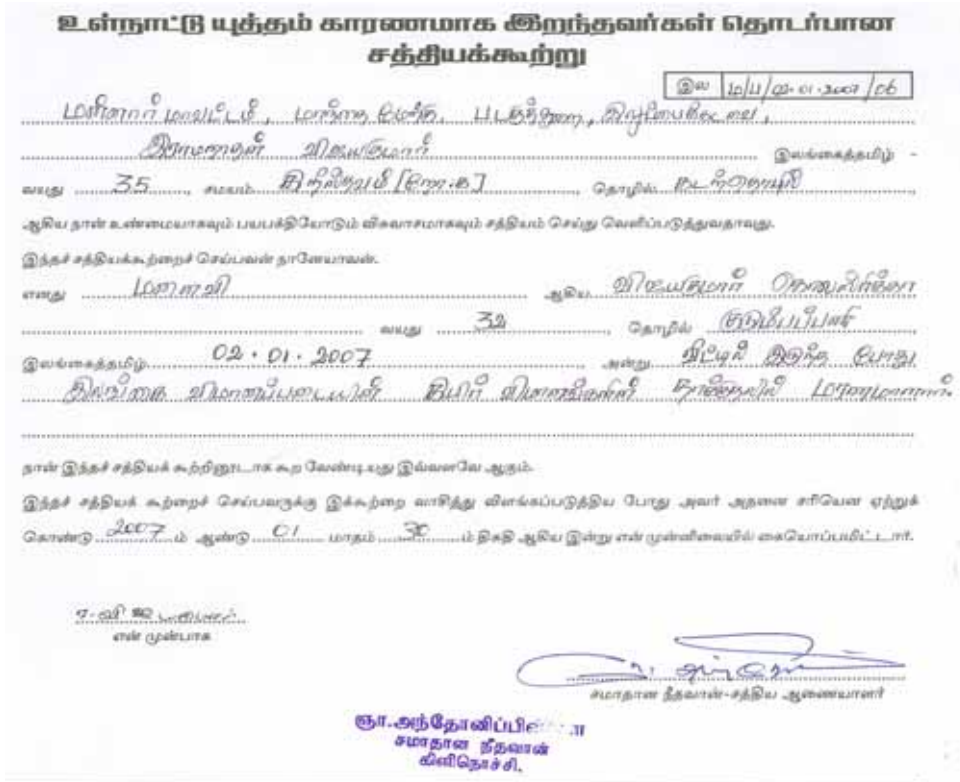 உள்நாட்டு யுத்தம் காரணமாக இறந்தவர்கள் தொடர்பான
சத்தியக்கூற்று
இல ம/ப/02-01-2007/06
மன்னார் மாவட்டம், மாந்தை மேற்கு, படகுத்துறை, இலுப்பைக்கடவை,
இராமநாதன் விஜயகுமார் இலங்கைத்தமிழ் -
வயது 35, சமயம் கிறிஸ்தவம் [றோ.க], தொழில் கடற்தொழில்,
ஆகிய நான் உண்மையாகவும் பயபக்தியோடும் விசுவாசமாகவும் சத்தியம் செய்து வெளிப்படுத்துவதாவது.
இந்தச் சத்தியக்கூற்றைச் செய்பவன் நானேயாவன்.
எனது மனைவி ஆகிய விஜயகுமார்
வயது 32, தொழில் குடும்பப்பணி
இலங்கைத்தமிழ் 02.01.2007 அன்று வீட்டில் இருந்த போது
இலங்கை விமானப்படையின் கிபிர் விமானங்களின் தாக்குதலில் மரணமானார்.
நான் இந்தச் சத்தியக் கூற்றினூடாக கூற வேண்டியது இவ்வளவே ஆகும்.
இந்தச் சத்தியக் கூற்றைச் செய்பவருக்கு இக்கூற்றை வாசித்து விளங்கப்படுத்திய போது அவர் அதனை சரியென ஏற்றுக்
கொண்டு 2007 ம் ஆண்டு 01 மாதம் 30 ம் திகதி ஆகிய இன்று என் முன்னிலையில் கையொப்பமிட்டார்.
என் முன்பாக
சமாதான நீதவான்-சத்திய ஆணையாளர்
ஞா.அந்தோனிப்பிள்ளை
சமாதான நீதவான்
கிளிநொச்சி.